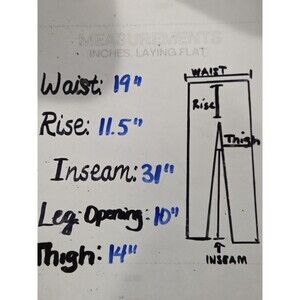 MEASUREMENTS
INCHES, LAYING FLAT
Waist: 19"
Rise: 11.5"
Inseam: 31"
Leg Opening: 10"
Thigh: 14"
WAIST
Rise
Thigh
INSEAM